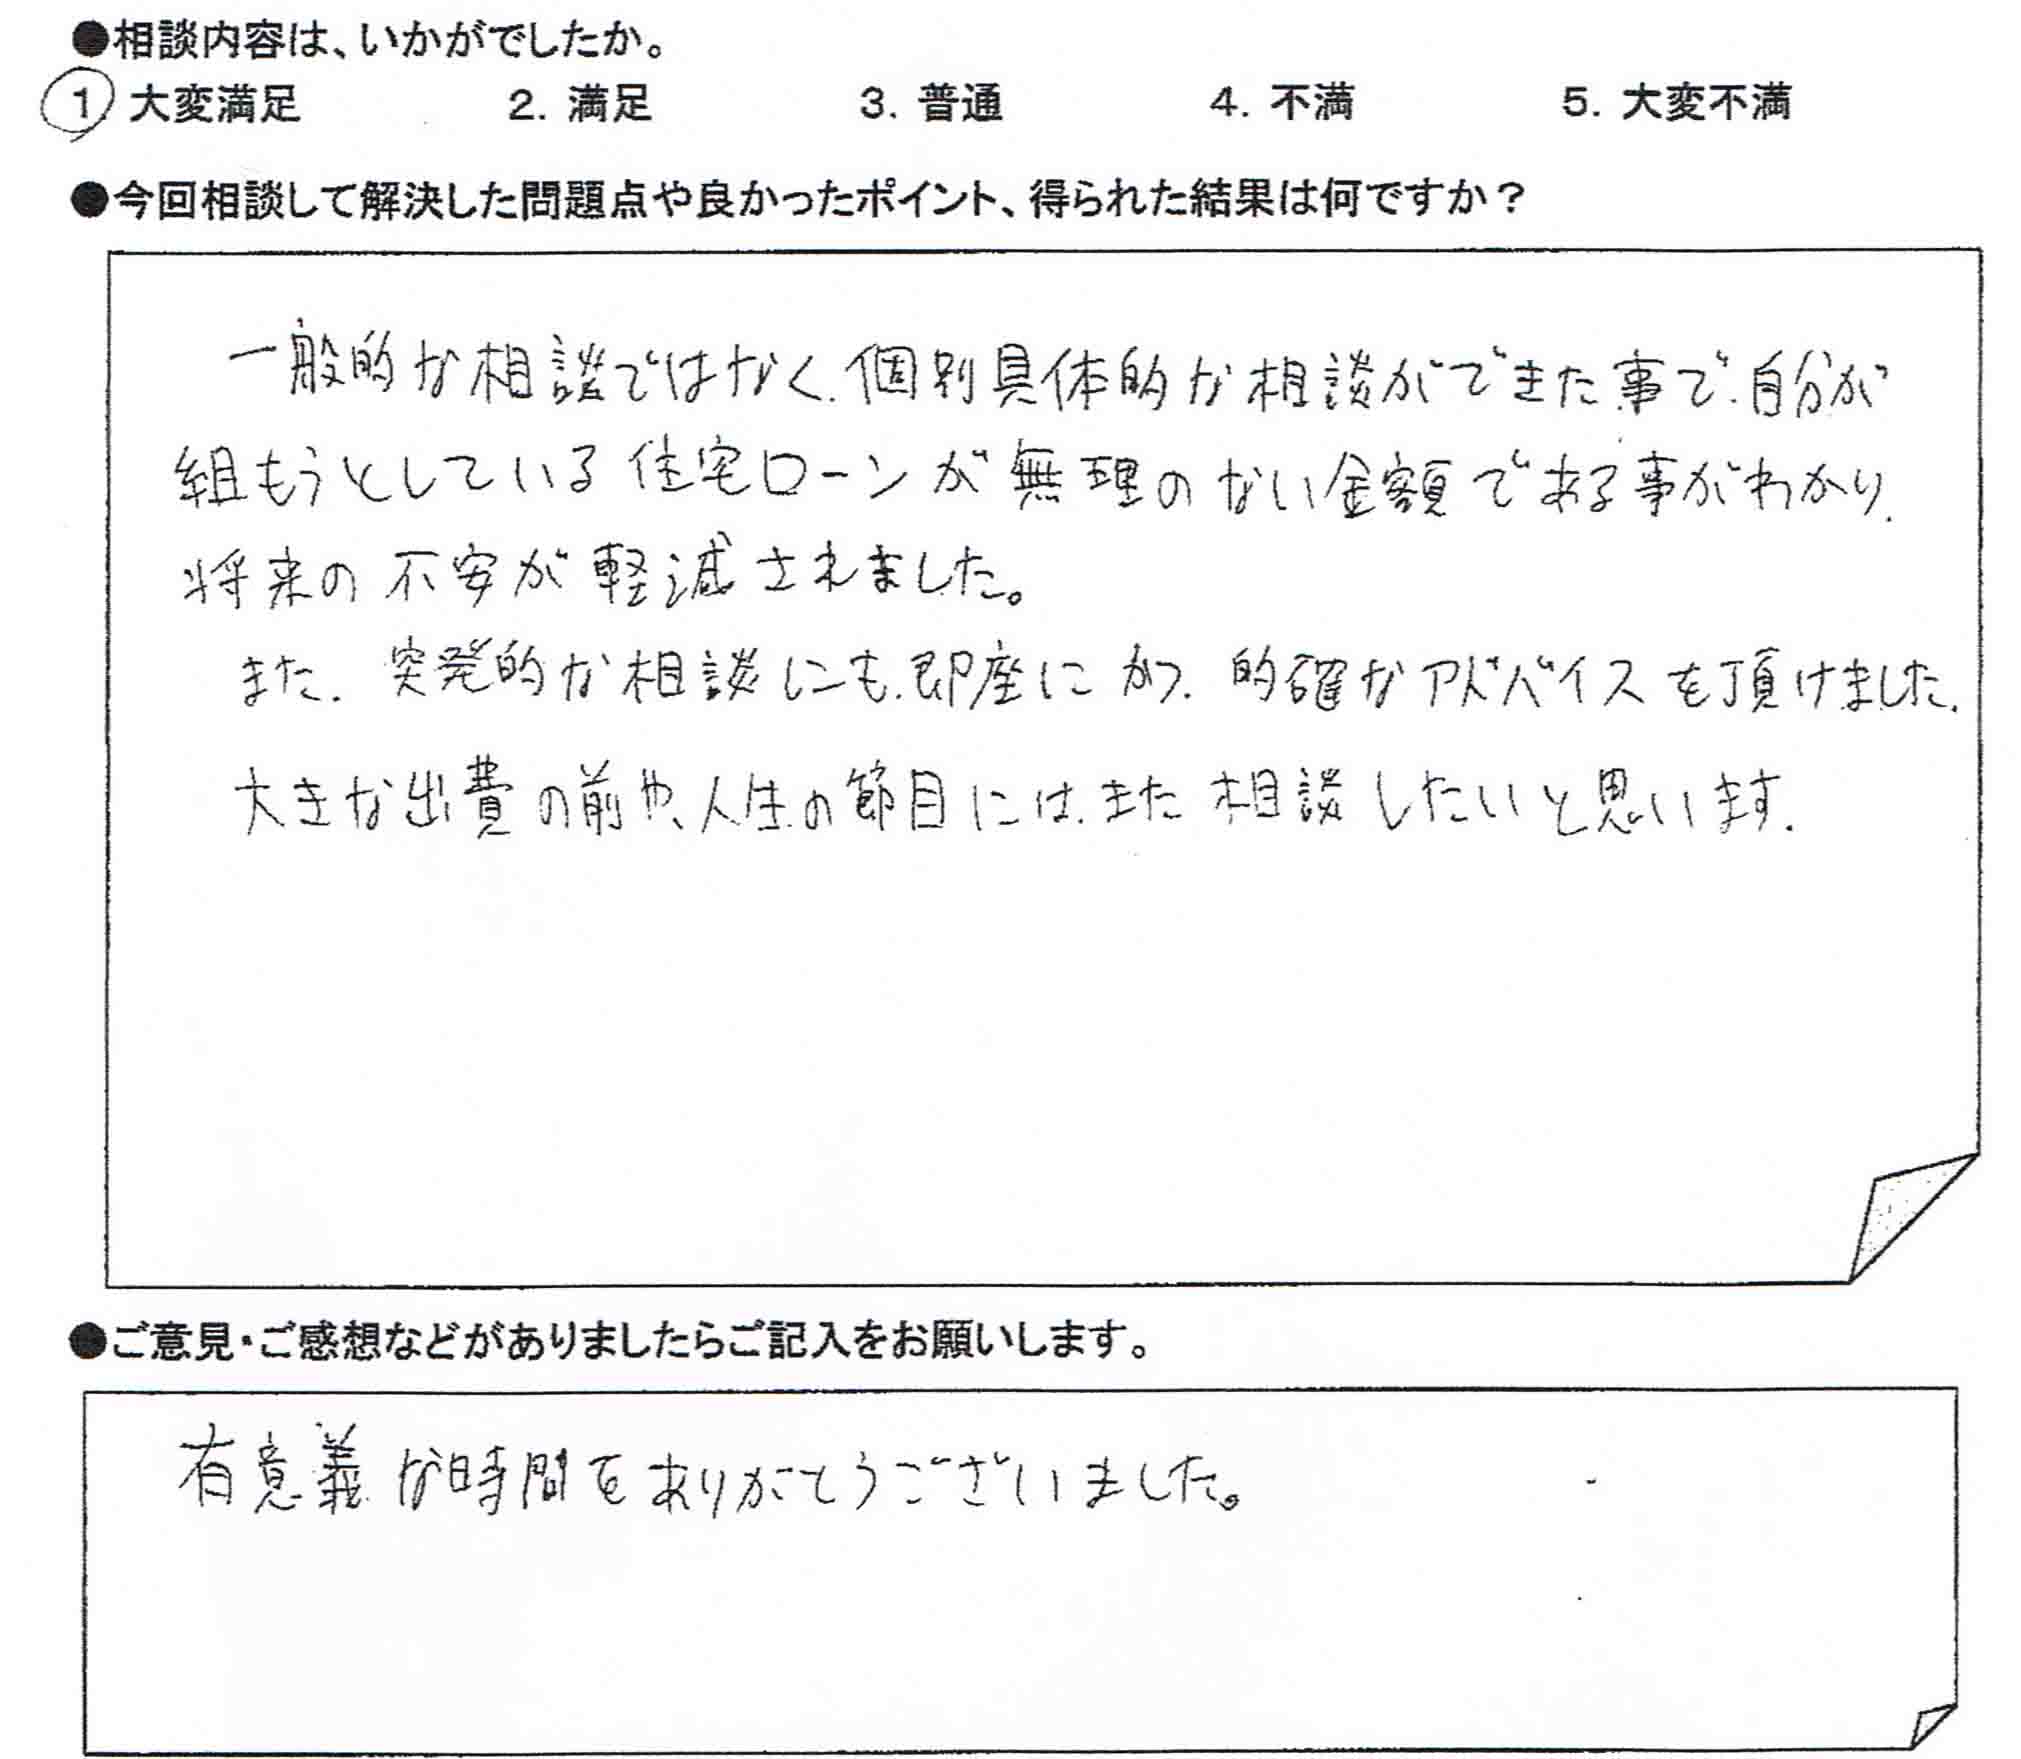 ●相談内容は、いかがでしたか。
1 大変満足 2. 満足 3. 普通 4. 不満 5. 大変不満
●今回相談して解決した問題点や良かったポイント、得られた結果は何ですか？
一般的な相談ではなく、個別具体的な相談ができた事で、自分が
組もうとしている住宅ローンが無理のない金額である事がわかり、
将来の不安が軽減されました。
また、突発的な相談にも、即座にかつ、的確なアドバイスを頂けました。
大きな出費の前や、人生の節目には、また相談したいと思います。
●ご意見・ご感想などがありましたらご記入をお願いします。
有意義な時間をありがとうございました。